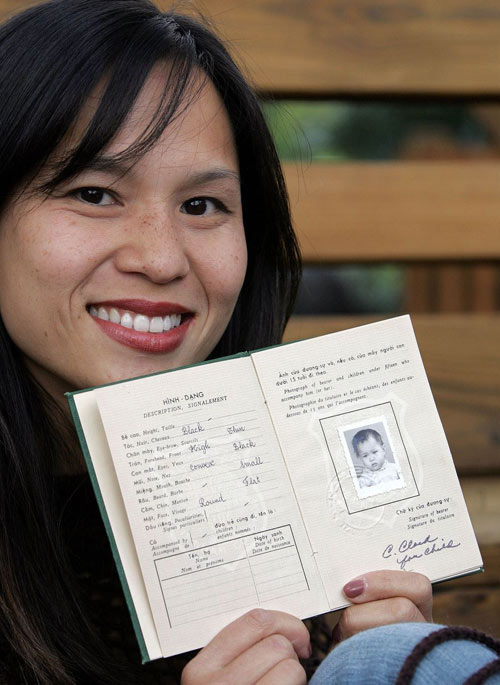 HÌNH-DẠNG
DESCRIPTION, SIGNALEMENT
Bề cao, Height, Taille
Tóc, Hair, Cheveux Black Thin
Chân mày, Eye-brow, Sourcils
Trán, Forehead, Front High Black
Con mắt, Eyes, Yeux
Mũi, Nose, Nez convex Small
Miệng, Mouth, Bouche
Râu, Beard, Barbe
Cằm, Chin, Menton Round Flat
Mặt, Face, Visage
Dấu riêng, Peculiarities,
Signes particuliers
Có đứa trẻ cùng đi, tên là :
Accompanied by children
Accompagné de enfants nommés
Tên, họ Ngày sanh
Name Date of birth
Nom et prénoms Date de naissance
Ảnh của đương-sự và, nếu có, của mấy người con
dưới 15 tuổi đi theo.
Photograph of bearer and children under fifteen who
accompany him (or her).
Photographie du titulaire et le cas échéant, des enfants au-
dessous de 15 ans qui l'accompagnent.
Chữ ký của đương-sự
Signature of bearer
Signature du titulaire
C. Clark
for Child